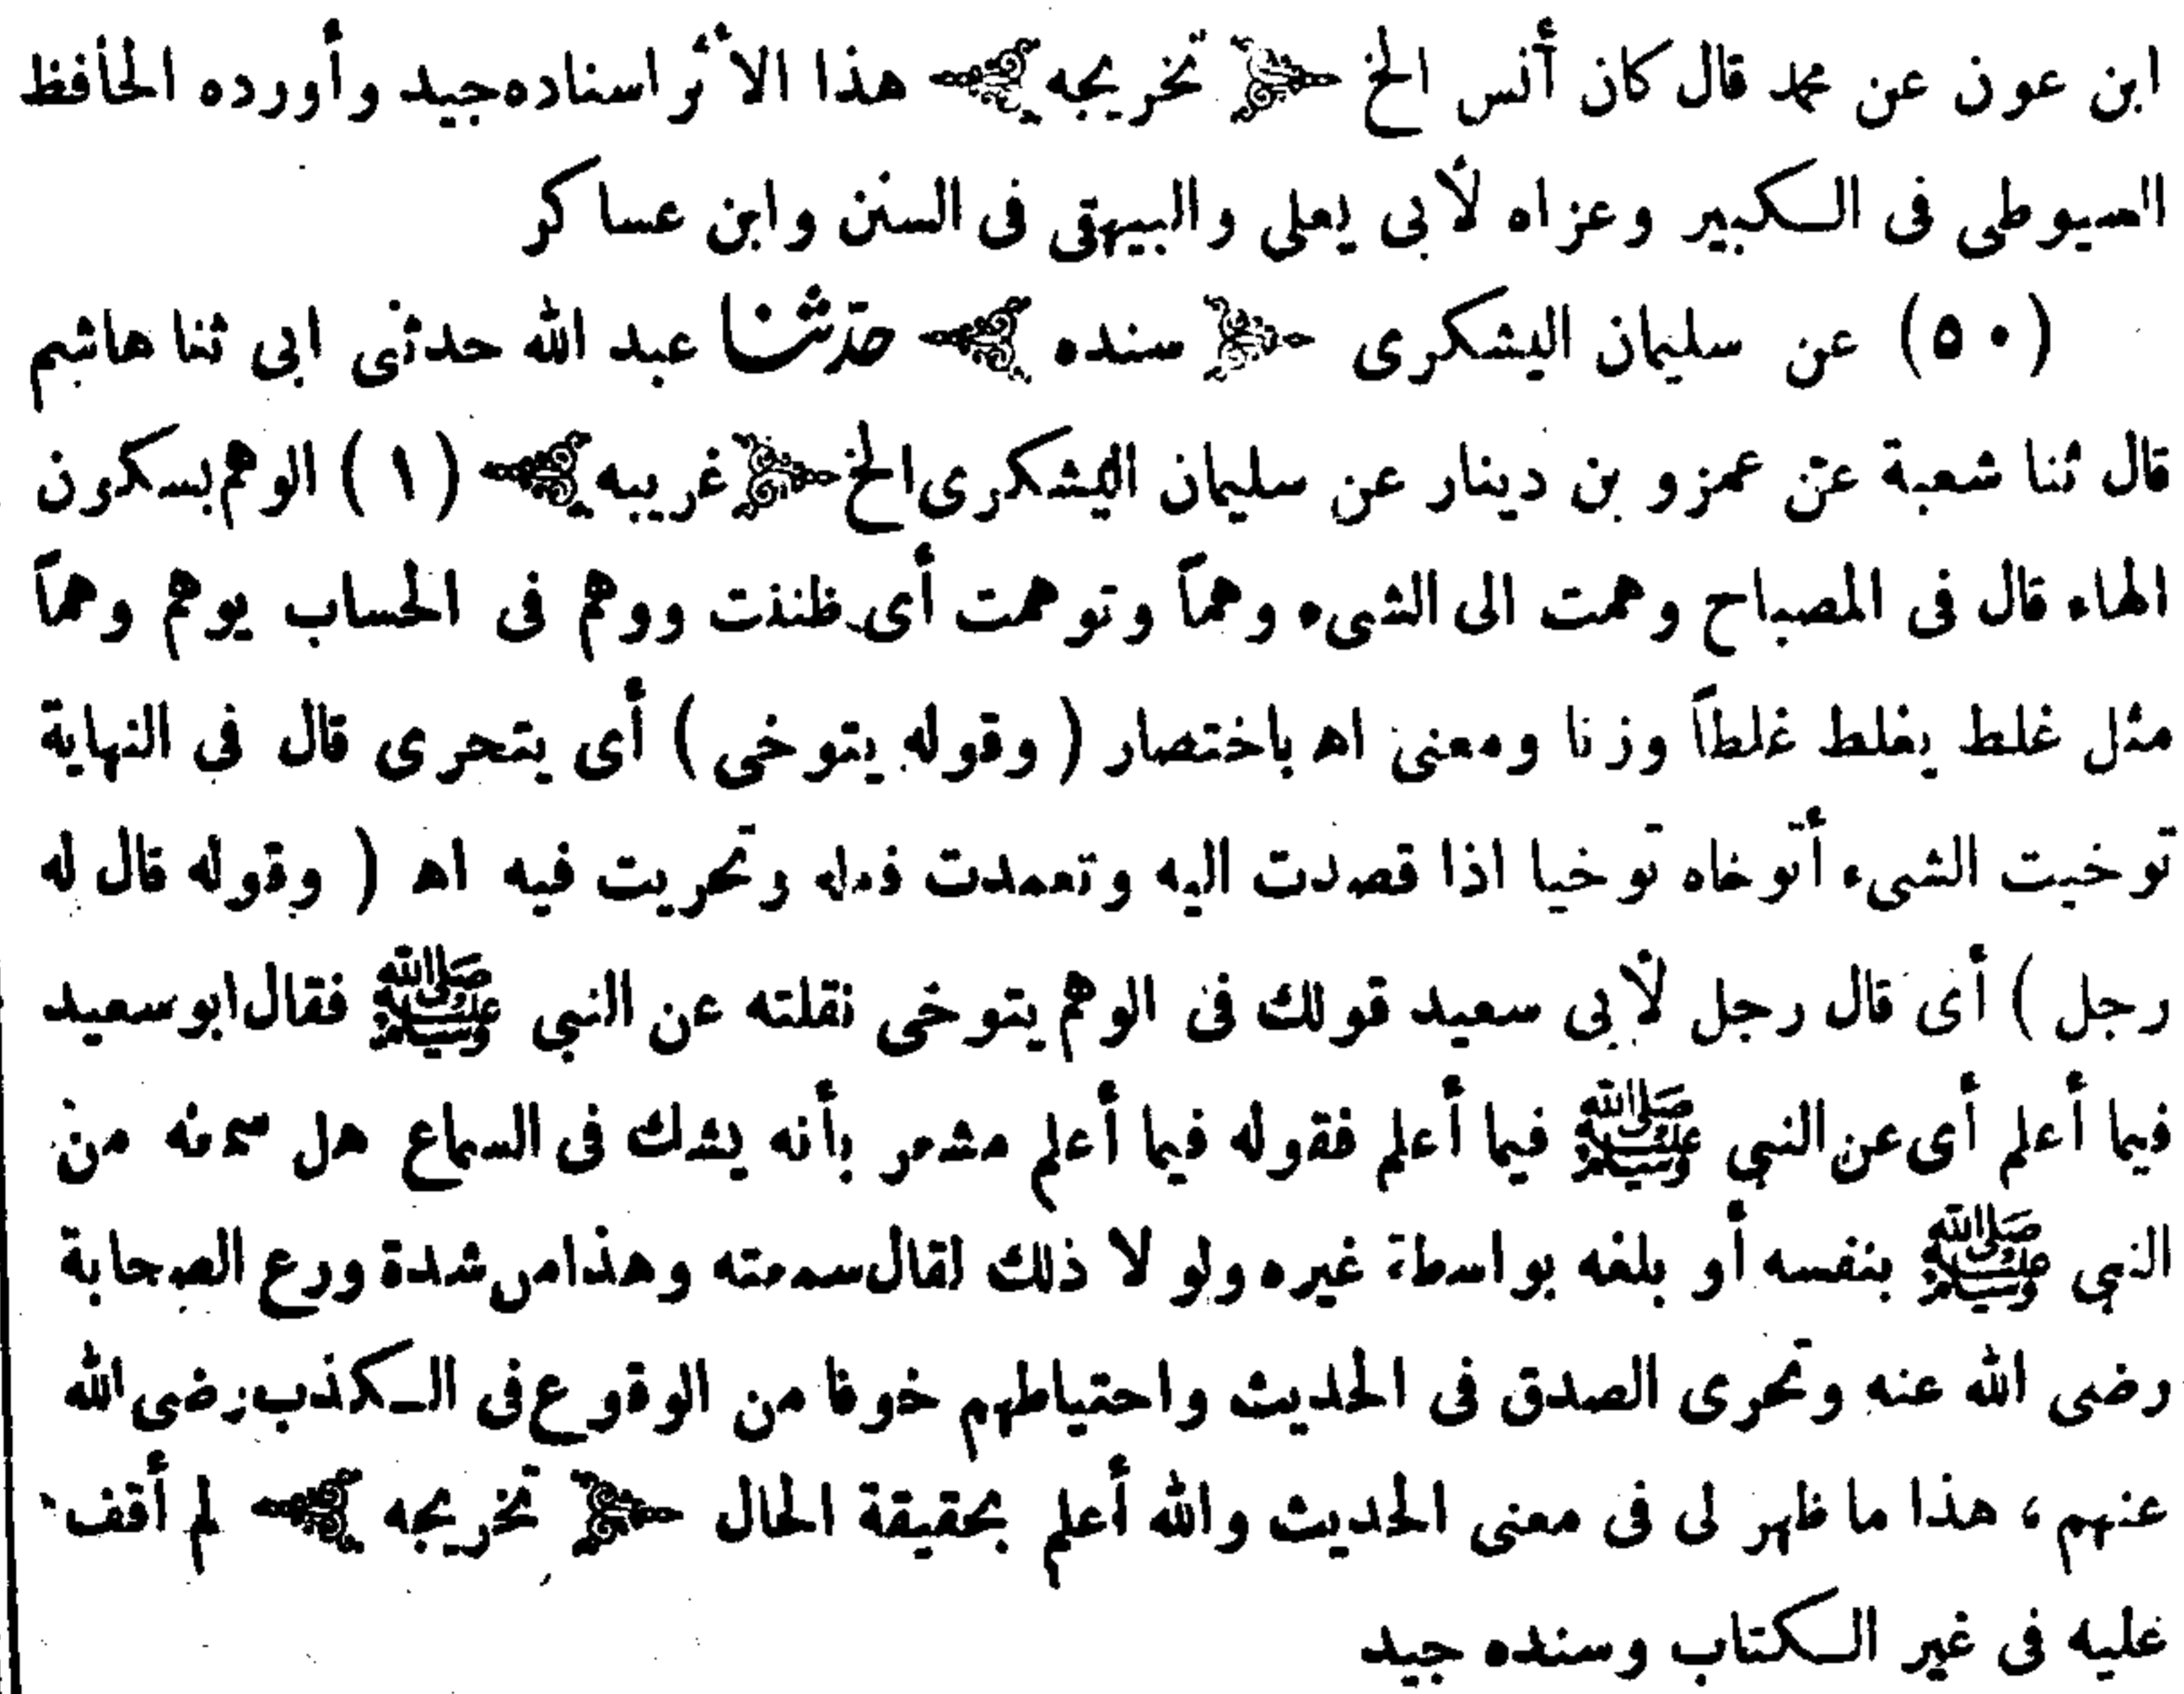 ابن عون عن محمد قال كان أنس الخ ﴿ تخريجه ﴾ هذا الأثر اسناده جيد وأورده الحافظ
السيوطى فى الكبير وعزاه لأبى يعلى والبيهقى فى السنن وابن عساكر
(٥٠) عن سليمان اليشكرى ﴿ سنده ﴾ حدثنا عبد الله حدثنى ابى ثنا هاشم
قال ثنا شعبة عن عمرو بن دينار عن سليمان اليشكرى الخ ﴿ غريبه ﴾ (١) الوهم بسكون
الهاء قال فى المصباح وهمت الى الشىء وهماً وتوهمت أى ظننت ووهم فى الحساب يوهم وهماً
مثل غلط يغلط غلطاً وزنا ومعنى اه باختصار ( وقوله يتوخى ) أى يتحرى قال فى النهاية
توخيت الشىء أتوخاه توخيا اذا قصدت اليه وتعمدت فعله وتحريت فيه اه ( وقوله قال له
رجل ) أى قال رجل لأبى سعيد قولك فى الوهم يتوخى نقلته عن النبي ﷺ فقال ابو سعيد
فيما أعلم أى عن النبي ﷺ فيما أعلم فقوله فيما أعلم مشعر بأنه يشك فى السماع هل سمعه من
النبي ﷺ بنفسه أو بلغه بواسطة غيره ولو لا ذلك لقال سمعته وهذا من شدة ورع الصحابة
رضى الله عنه وتحرى الصدق فى الحديث واحتياطهم خوفا من الوقوع فى الكذب رضى الله
عنهم ، هذا ما ظهر لى فى معنى الحديث والله أعلم بحقيقة الحال ﴿ تخريجه ﴾ لم أقف
عليه فى غير الكتاب وسنده جيد